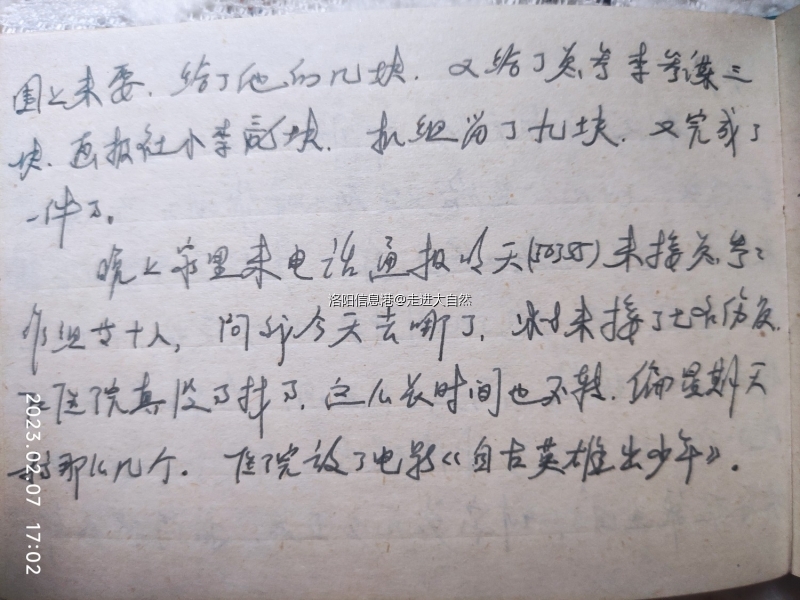 围上来要，给了他们几块，又给了总参李参谋三
块，画报社小李两块，机组留了九块，又完成了
一件了。
晚上家里来电话通报明天(50385)来接总参工
作组廿十人，问我今天去哪了，来接了七名伤员，
医院真没了抖了，这么长时间也不转，偏星期天
转那么几个。医院放了电影《自古英雄出少年》。
洛阳信息港@走进大自然
2023.02.07 17:02